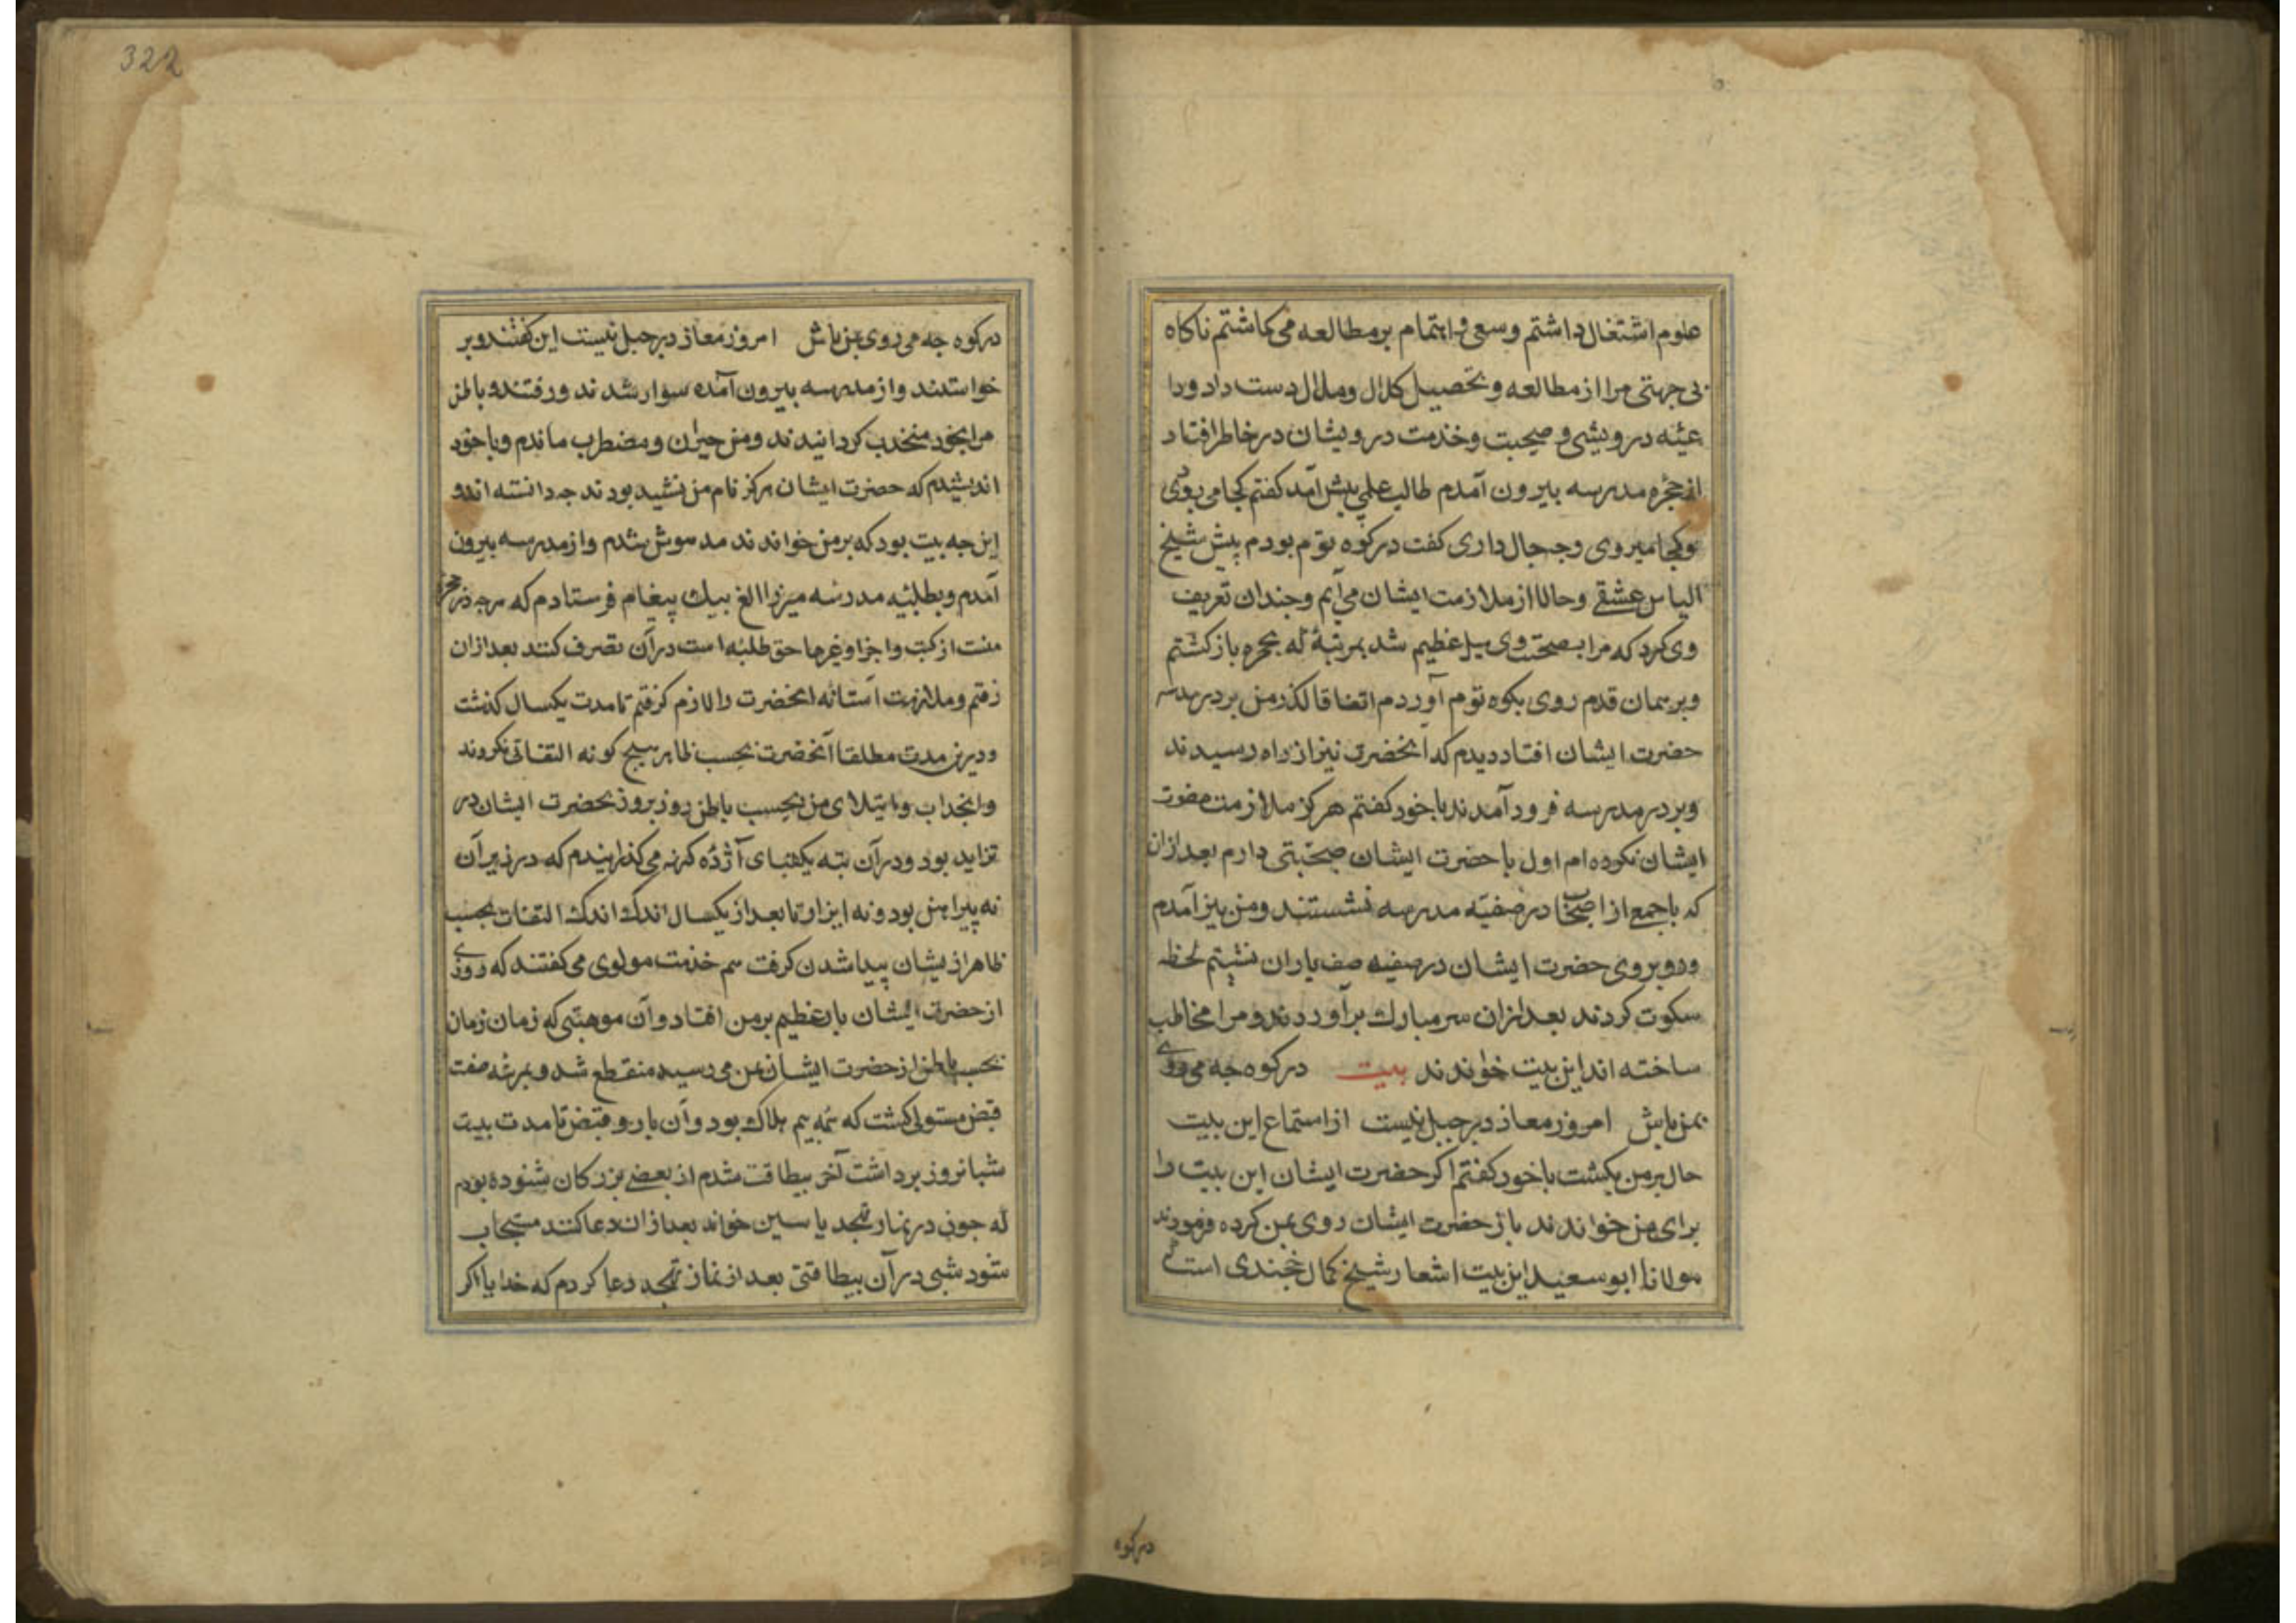 علوم اشتغال داشتم و سعی و اهتمام بر مطالعه می کماشتم ناکاه
بی جهتی مرا از مطالعه و تحصیل کلال و ملال دست داد ودا
عیئه درویشی و صحبت و خدمت درویشان در خاطر افتاد
از حجره مدرسه بیرون آمدم طالب علمی پیش آمد کفتم کجا می روی
وکجا میروی وجه حال داری کفت در کوه توم بودم پیش شیخ
الیاس عشقی وحالا از ملازمت ایشان می آیم وجندان تعریف
وی کرد که مرا بصحبت وی میل عظیم شد بمرتبۀ که بحجره باز کشتم
وبر همان قدم روی بکوه توم آوردم اتفاقا کذر من بر در مدرسه
حضرت ایشان افتاد دیدم که آنحضرت نیز از راه رسیدند
وبر در مدرسه فرود آمدند با خود کفتم هرکز ملازمت حضرت
ایشان نکرده ام اول با حضرت ایشان صحبتی دارم بعد ازان
که با جمع از اصحاب در صفیّه مدرسه نشستند ومن نیز آمدم
وروبروی حضرت ایشان در صفیه صف یاران نشستم لحظه
سکوت کردند بعد ازان سر مبارک برآوردند ومرا مخاطب
ساخته اند این بیت خواندند بیت در کوه جه می روی
بمن باش امروز معاذ در جبل نیست از استماع این بیت
حال بر من بکشت با خود کفتم اکر حضرت ایشان این بیت را
برای من خواندند باز حضرت ایشان روی بمن کرده فرمودند
مولانا ابو سعید این بیت اشعار شیخ کمال خجندی است
در کوه
322
در کوه جه می روی بمن باش امروز معاذ در جبل نیست این کفتند وبر
خواستند واز مدرسه بیرون آمده سوار شدند ورفتند وباطن
مرا بخود منجذب کردانیدند ومن حیران ومضطرب ماندم وبا خود
اندیشیدم که حضرت ایشان هرکز نام من نشنیده بودند جه دانسته اند و
این جه بیت بود که بر من خواندند مدهوش شدم واز مدرسه بیرون
آمدم وبطلبئه مدرسه میرزا الغ بیک پیغام فرستادم که هرجه در حجره
منست از کتب واجزا وغیرها حق طلبئه است در آن تصرف کنند بعد ازان
رفتم وملازمت آستانه آنحضرت را لازم کرفتم تا مدت یکسال کذشت
ودرین مدت مطلقا آنحضرت بحسب ظاهر هیج کونه التفاتی نکردند
وانجذاب وابتلای من بحسب باطن روز بروز بحضرت ایشان در
تزاید بود ودر آن بته یکتبای آژده کهنه می کذرانیدم که در زیر آن
نه پیراهن بود ونه ایزار تا بعد از یکسال اندک اندک التفات بحسب
ظاهر از یشان پیدا شدن کرفت هم خدمت مولوی می کفتند که روزی
از حضرت ایشان بار عظیم بر من افتاد وآن موهبتی که زمان زمان
بحسب باطن از حضرت ایشان بمن می رسید منقطع شد وبمرتبه صفت
قبض مستولی کشت که بمه بیم هلاک بود وآن بار و قبض تا مدت بیست
شبانروز برداشت آخر بیطاقت شدم از بعضی بزرکان شنوده بودم
که جون در نماز تهجد یاسین خواند بعد ازان دعا کنند مستجاب
شود شبی در آن بیطاقتی بعد از نماز تهجد دعا کردم که خدایا اکر